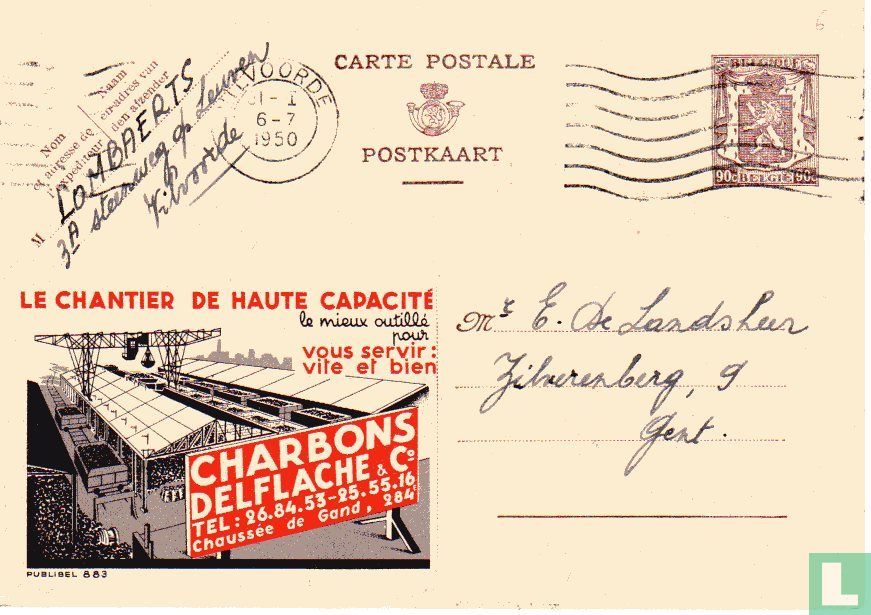 6
CARTE POSTALE
POSTKAART
BELGIQUE
90c BELGIE 90c
VILVOORDE
31-I
6-7
1950
Nom
et adresse de
l'expéditeur
Naam
en adres van
den afzender
M LOMBAERTS
3A steenweg op Leuven
Vilvoorde
LE CHANTIER DE HAUTE CAPACITÉ
le mieux outillé
pour
vous servir:
vite et bien
CHARBONS
DELFLACHE & Co
TEL: 26.84.53-25.55.16
Chaussée de Gand, 284E
PUBLIBEL 883
Mr E. De Landsheer
Zilverenberg, 9
Gent.
L